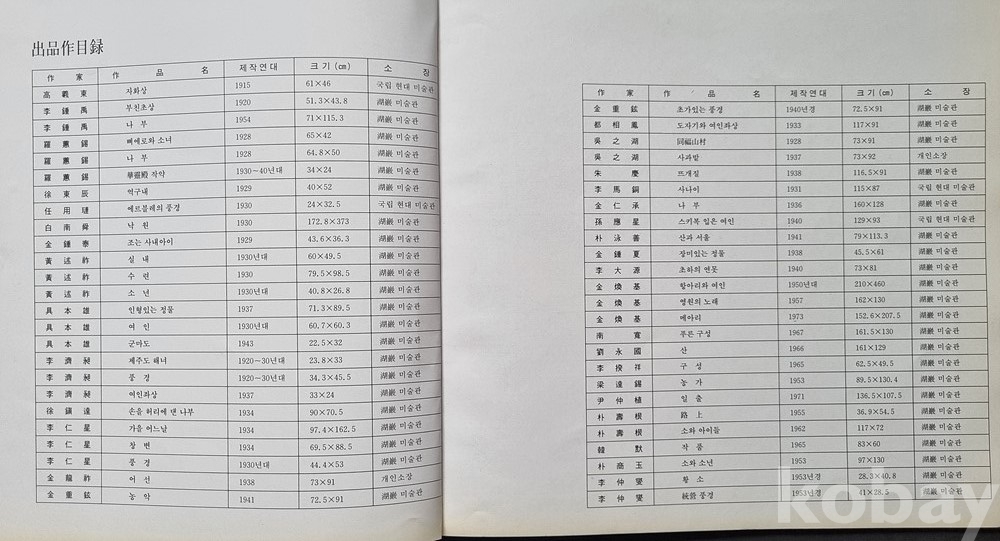 出品作目録
作家 作品名 제작연대 크기(㎝) 소장
高羲東 자화상 1915 61×46 국립 현대 미술관
李鍾禹 부친초상 1920 51.3×43.8 湖巖 미술관
李鍾禹 나부 1954 71×115.3 湖巖 미술관
羅蕙錫 뻬에로와 소녀 1928 65×42 湖巖 미술관
羅蕙錫 나부 1928 64.8×50 湖巖 미술관
羅蕙錫 華靈殿 작약 1930~40년대 34×24 湖巖 미술관
徐東辰 역구내 1929 40×52 湖巖 미술관
任用璉 에르블레의 풍경 1930 24×32.5 국립 현대 미술관
白南舜 낙원 1930 172.8×373 湖巖 미술관
金鍾泰 조는 사내아이 1929 43.6×36.3 湖巖 미술관
黃述祚 실내 1930년대 60×49.5 湖巖 미술관
黃述祚 수련 1930 79.5×98.5 湖巖 미술관
黃述祚 소년 1930년대 40.8×26.8 湖巖 미술관
具本雄 인형있는 정물 1937 71.3×89.5 湖巖 미술관
具本雄 여인 1930년대 60.7×60.3 湖巖 미술관
具本雄 군마도 1943 22.5×32 湖巖 미술관
李濟昶 제주도 해녀 1920~30년대 23.8×33 湖巖 미술관
李濟昶 풍경 1920~30년대 34.3×45.5 湖巖 미술관
李濟昶 여인좌상 1937 33×24 湖巖 미술관
徐鎭達 손을 허리에 댄 나부 1934 90×70.5 湖巖 미술관
李仁星 가을 어느날 1934 97.4×162.5 湖巖 미술관
李仁星 창변 1934 69.5×88.5 湖巖 미술관
李仁星 풍경 1930년대 44.4×53 湖巖 미술관
金龍祚 어선 1938 73×91 개인소장
金重鉉 농악 1941 72.5×91 湖巖 미술관
作家 作品名 제작연대 크기(㎝) 소장
金重鉉 초가있는 풍경 1940년경 72.5×91 湖巖 미술관
都相鳳 도자기와 여인좌상 1933 117×91 湖巖 미술관
吳之湖 同福山村 1928 73×91 湖巖 미술관
吳之湖 사과밭 1937 73×92 개인소장
朱慶 뜨개질 1938 116.5×91 湖巖 미술관
李馬銅 사나이 1931 115×87 국립 현대 미술관
金仁承 나부 1936 160×128 湖巖 미술관
孫應星 스키복 입은 여인 1940 129×93 국립 현대 미술관
朴泳善 산과 서울 1941 79×113.3 湖巖 미술관
金鍾夏 장미있는 정물 1938 45.5×61 湖巖 미술관
李大源 초하의 연못 1940 73×81 湖巖 미술관
金煥基 항아리와 여인 1950년대 210×460 湖巖 미술관
金煥基 영원의 노래 1957 162×130 湖巖 미술관
金煥基 메아리 1973 152.6×207.5 湖巖 미술관
南寬 푸른 구성 1967 161.5×130 湖巖 미술관
劉永國 산 1966 161×129 湖巖 미술관
李揆祥 구성 1965 62.5×49.5 湖巖 미술관
梁達錫 농가 1953 89.5×130.4 湖巖 미술관
尹仲植 일출 1971 136.5×107.5 湖巖 미술관
朴壽根 路上 1955 36.9×54.5 湖巖 미술관
朴壽根 소와 아이들 1962 117×72 湖巖 미술관
韓默 작품 1965 83×60 湖巖 미술관
朴商玉 소와 소년 1953 97×130 湖巖 미술관
李仲燮 황소 1953년경 28.3×40.8 湖巖 미술관
李仲燮 統營 풍경 1953년경 41×28.5 湖巖 미술관
kobay